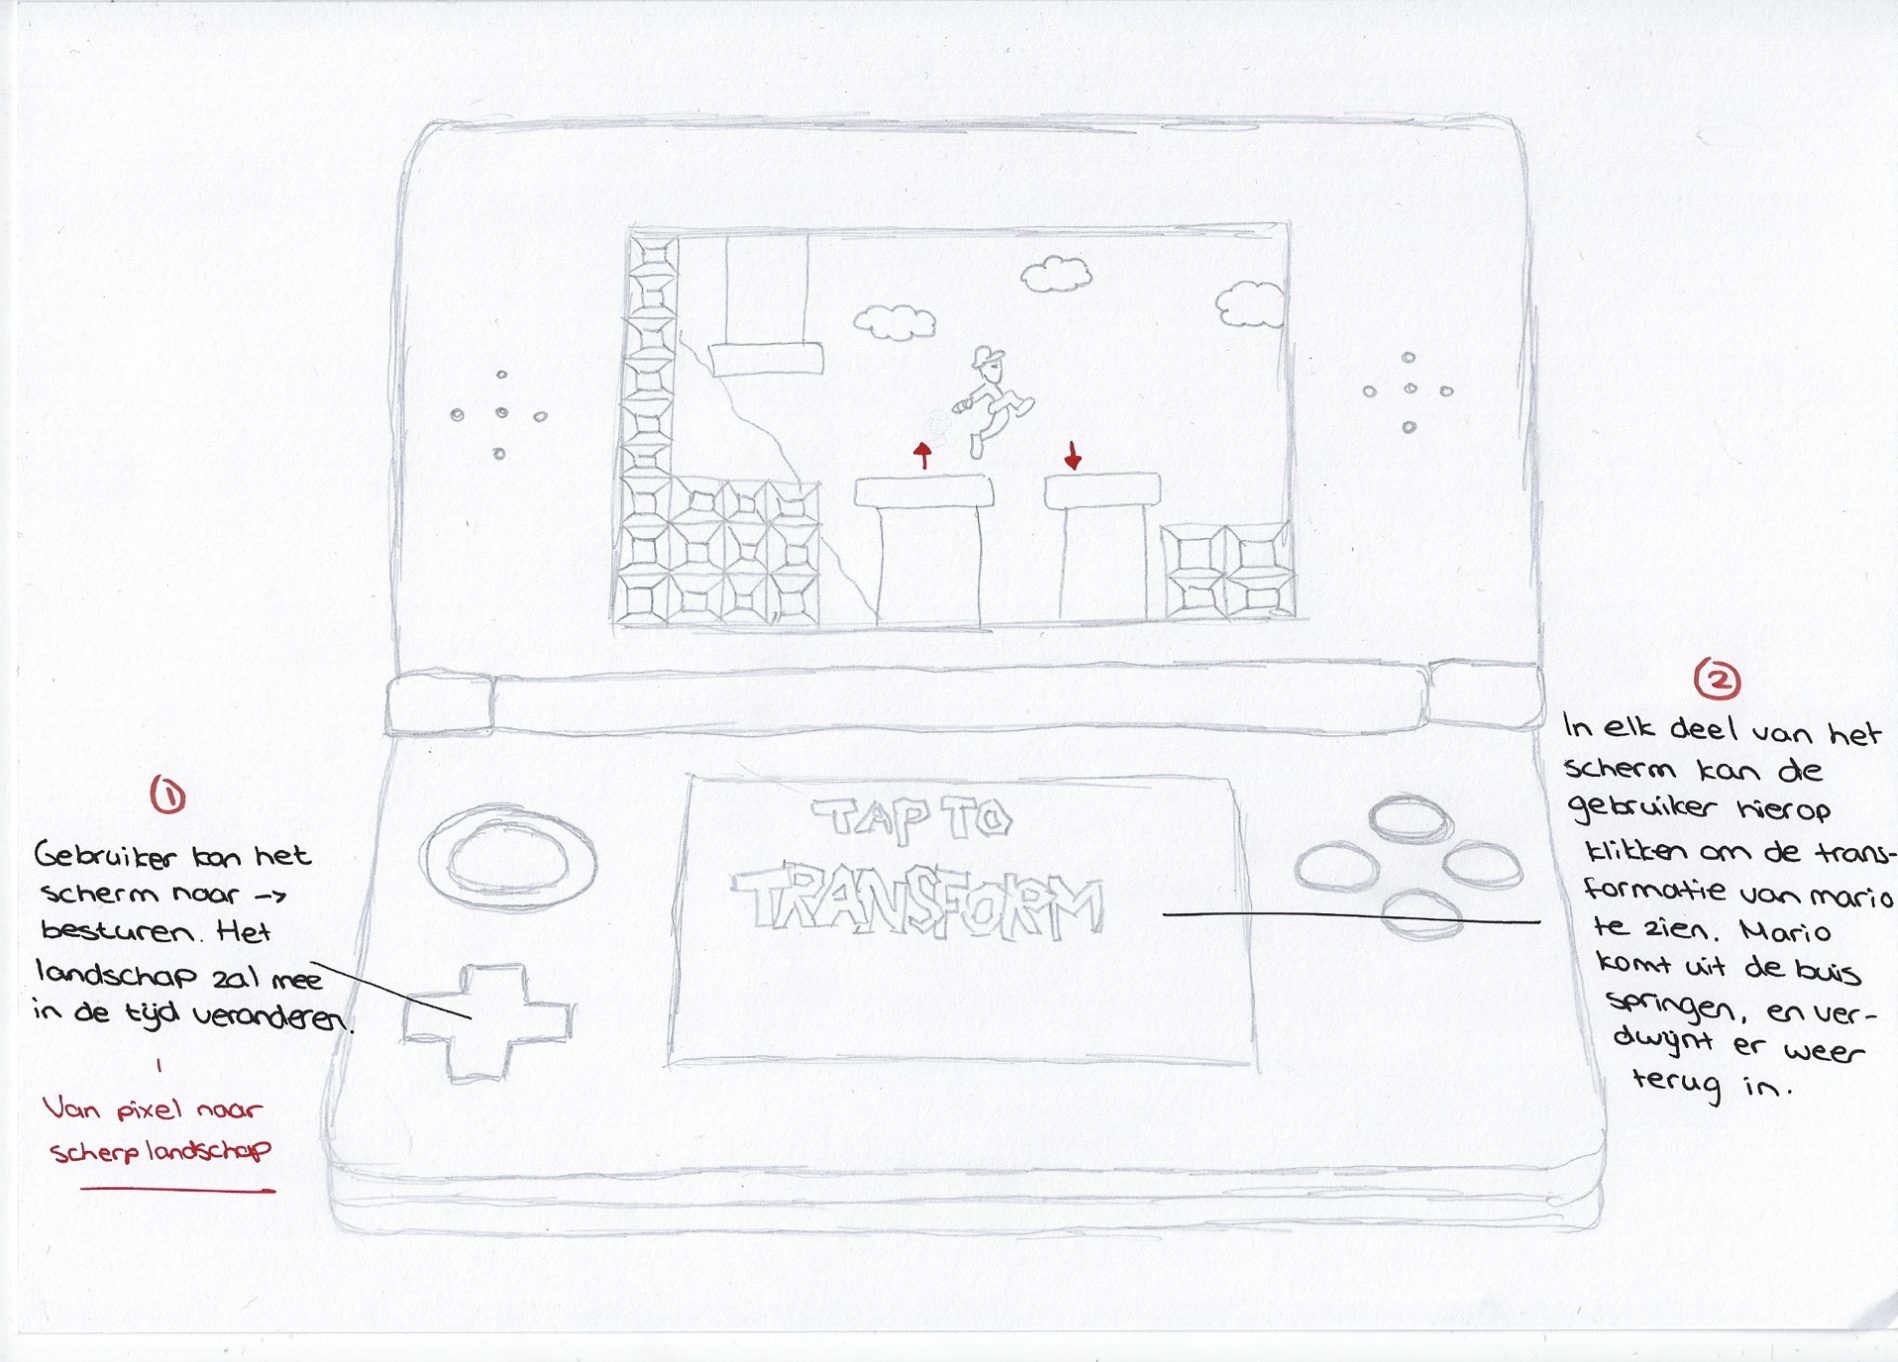 TAP TO
TRANSFORM
①
Gebruiker kan het
scherm naar ->
besturen. Het
landschap zal mee
in de tijd veranderen.
Van pixel naar
scherp landschap
②
In elk deel van het
scherm kan de
gebruiker hierop
klikken om de trans-
formatie van mario
te zien. Mario
komt uit de buis
springen, en ver-
dwijnt er weer
terug in.